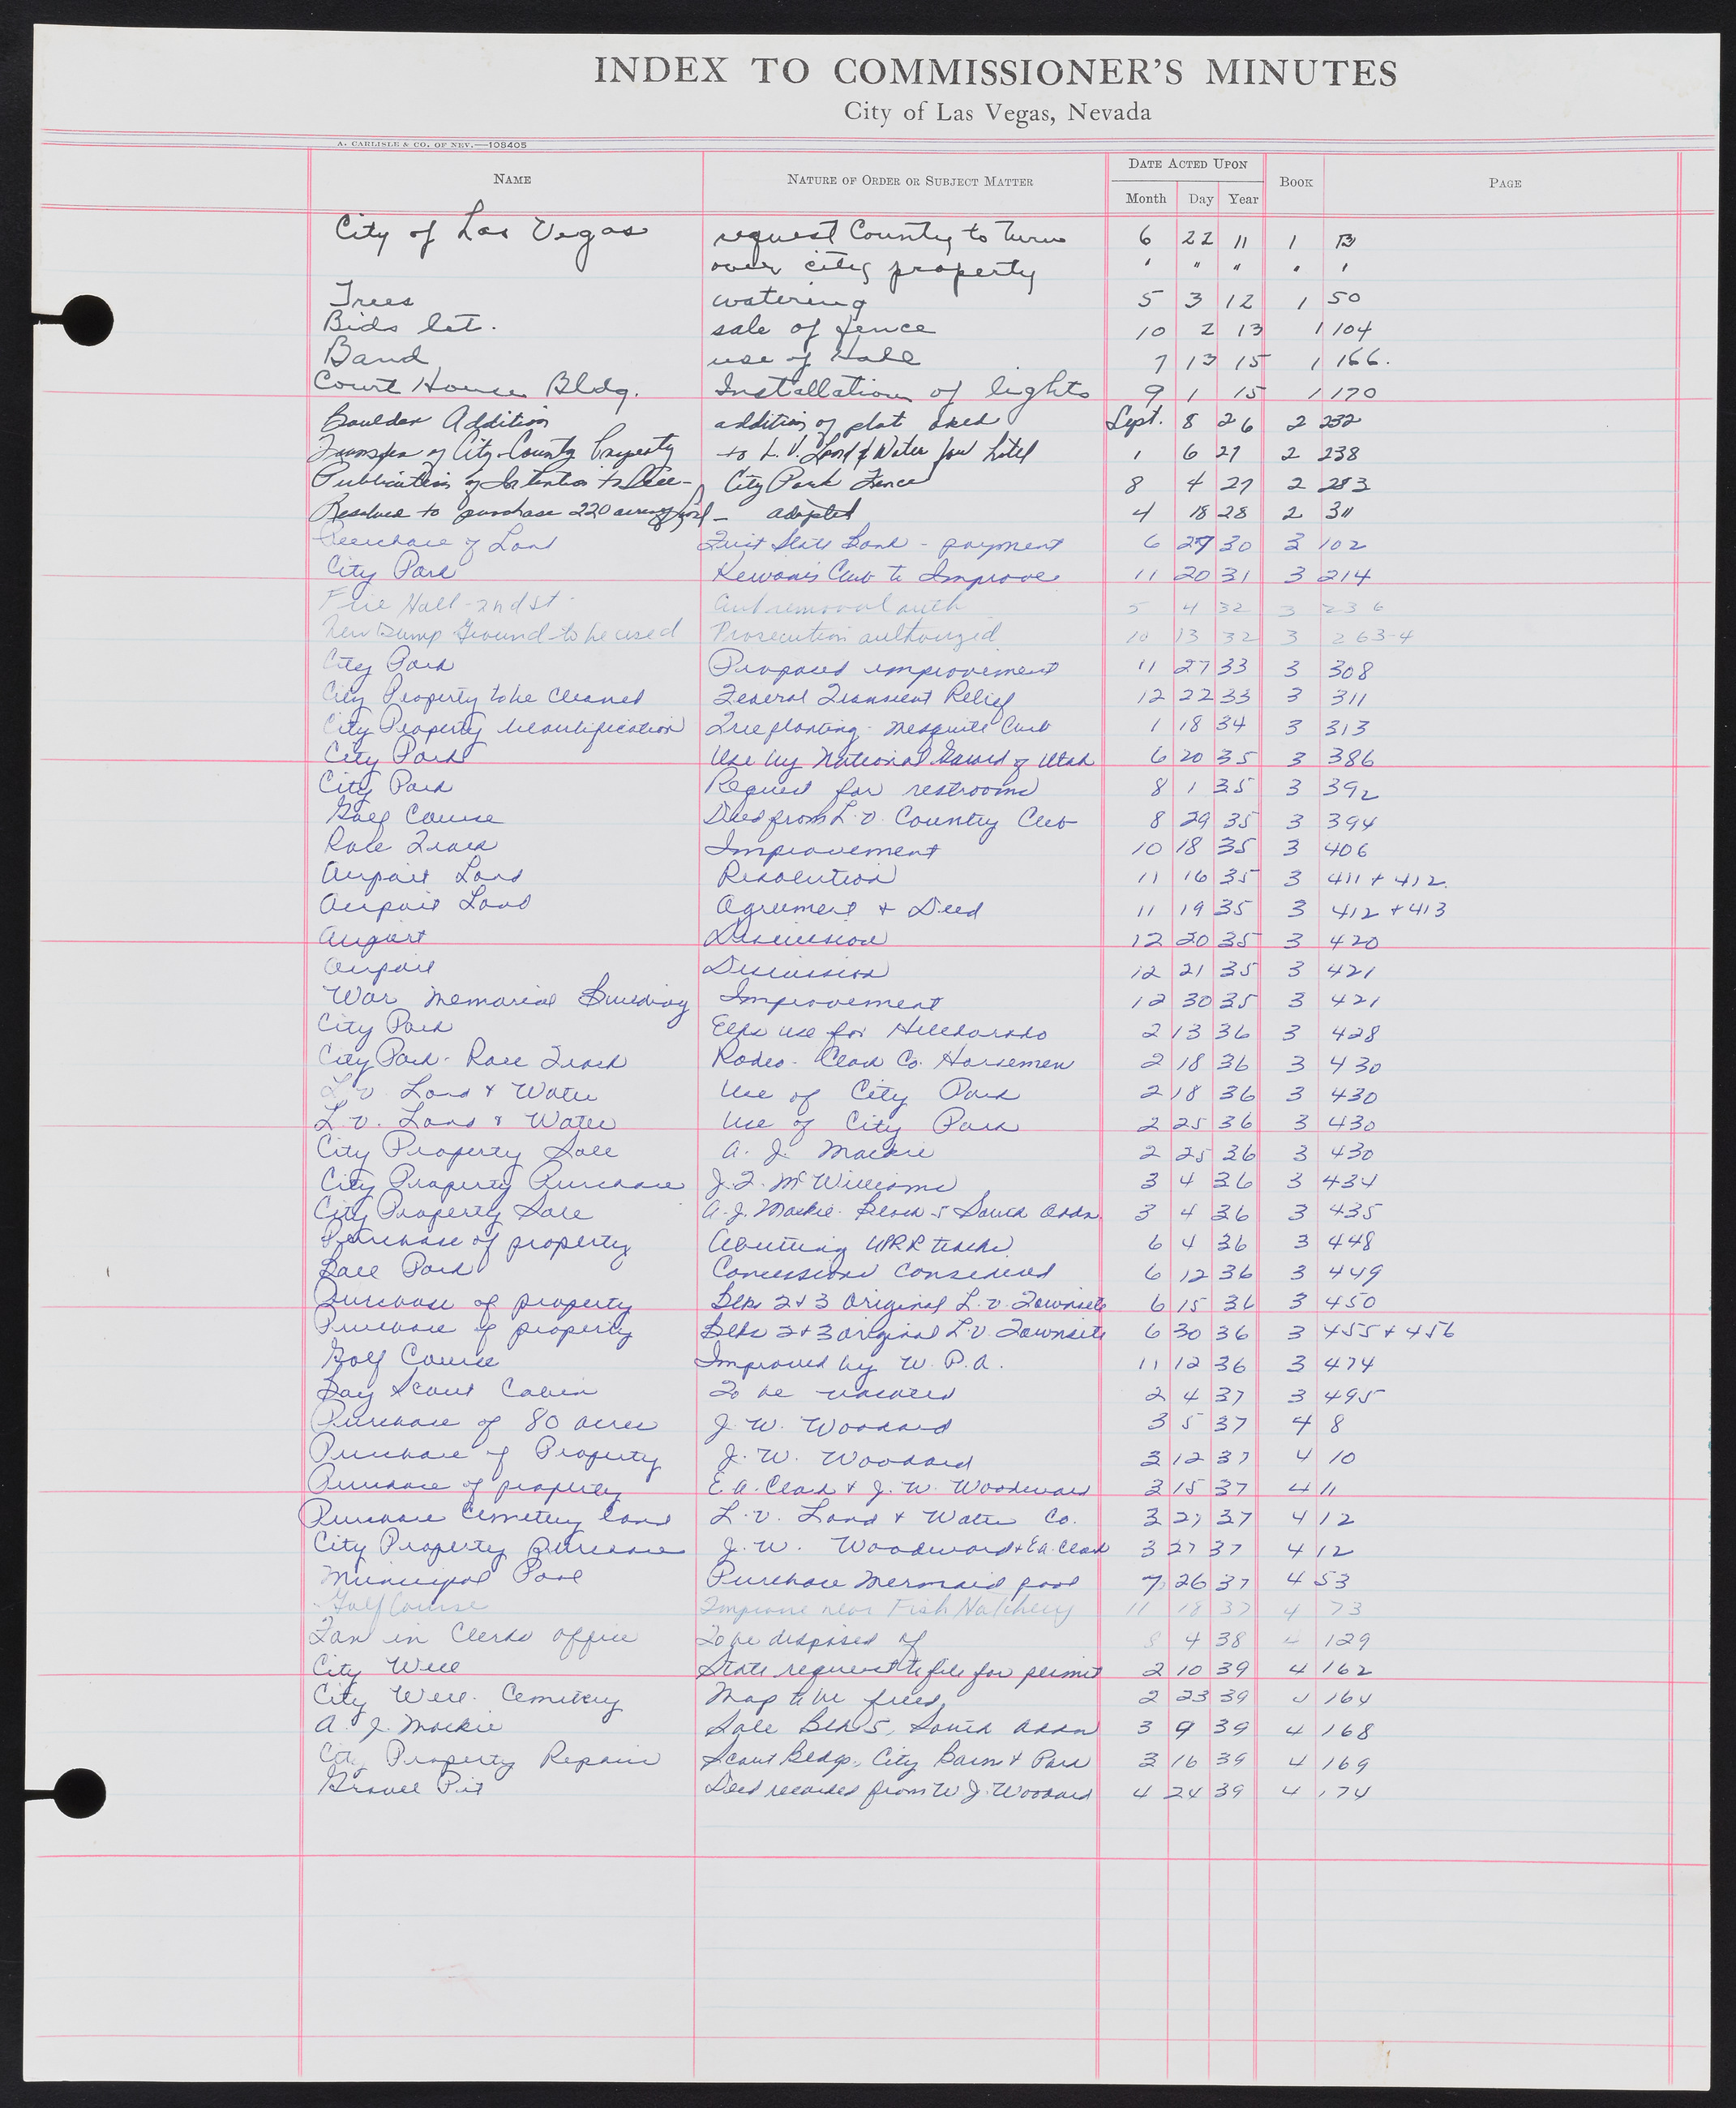 INDEX TO COMMISSIONER'S MINUTES
City of Las Vegas, Nevada
A. CARLISLE & CO. OF NEV.—108405
NAME NATURE OF ORDER OR SUBJECT MATTER DATE ACTED UPON BOOK PAGE
Month Day Year
City of Las Vegas request County to turn 6 22 11 1 13
over city property " " " " "
Trees watering 5 3 12 1 50
Bids let. sale of fence 10 2 13 1 104
Band use of Hall 7 13 15 1 166.
Court House Bldg. Installation of lights 9 1 15 1 170
Boulder Addition addition of plat oked Sept. 8 26 2 232
Transfer of City-County Property to L.V. Land & Water for hotel 1 6 27 2 238
Publication of Intention to Sell - City Park Fence 8 4 27 2 283
Resolved to purchase 220 acres of land - adopted 4 18 28 2 311
Purchase of Land First State Bank - payment 6 27 30 3 102
City Park Kewanis Club to Improve 11 20 31 3 214
Fire Hall - 2nd St. removal auth 5 4 32 3 236
New Dump Ground to be used Prosecution authorized 10 13 32 3 263-4
City Park Proposed improvement 11 27 33 3 308
City Property to be cleaned Federal Transient Relief 12 22 33 3 311
City Property beautification Tree planting - Mesquite Club 1 18 34 3 313
City Park Use by National Guard of Utah 6 20 35 3 386
City Park Request for restrooms 8 1 35 3 392
Golf Course Deed from L.V. Country Club 8 29 35 3 394
Race Track Improvement 10 18 35 3 406
Airport Land Resolution 11 16 35 3 411 + 412.
Airport Land Agreement + Deed 11 19 35 3 412 + 413
Airport Discussion 12 20 35 3 420
Airport Discussion 12 21 35 3 421
War Memorial Building Improvement 12 30 35 3 421
City Park Elks use for Helldorado 2 13 36 3 428
City Park - Race Track Rodeo - Clark Co. Horsemen 2 18 36 3 430
L.V. Land & Water Use of City Park 2 18 36 3 430
L.V. Land & Water Use of City Park 2 25 36 3 430
City Property Sale A. J. Mackie 2 25 36 3 430
City Property Purchase J.T. McWilliams 3 4 36 3 434
City Property Sale A.J. Mackie - Block 5 South Addn. 3 4 36 3 435
Purchase of property Abutting UPRR tracks 6 4 36 3 448
Ball Park Concessions considered 6 12 36 3 449
Purchase of property Blks 2+3 Original L.V. Townsite 6 15 36 3 450
Purchase of property Blks 2+3 Original L.V. Townsite 6 30 36 3 455 + 456
Golf Course Improved by W.P.A. 11 12 36 3 474
Boy Scout Cabin To be vacated 2 4 37 3 495
Purchase of 80 acres J. W. Woodard 3 5 37 4 8
Purchase of Property J. W. Woodard 3 12 37 4 10
Purchase of property E.A. Clark & J. W. Woodward 3 15 37 4 11
Purchase Cemetery land L.V. Land & Water Co. 3 27 37 4 12
City Property Purchase J.W. Woodward & E.A. Clark 3 27 37 4 12
Municipal Pool Purchase Mermaid pool 7 26 37 4 53
Golf Course Improve near Fish Hatchery 11 18 37 4 73
Fan in Clerks office To be disposed of 8 4 38 4 129
City Well State request to file for permit 2 10 39 4 162
City Well - Cemetery Map to be filed 2 23 39 4 164
A. J. Mackie Sale Blk 5, South Addn 3 9 39 4 168
City Property Repairs Scout Bldgs., City Barn & Park 3 16 39 4 169
Gravel Pit Deed recorded from W.J. Woodard 4 24 39 4 174